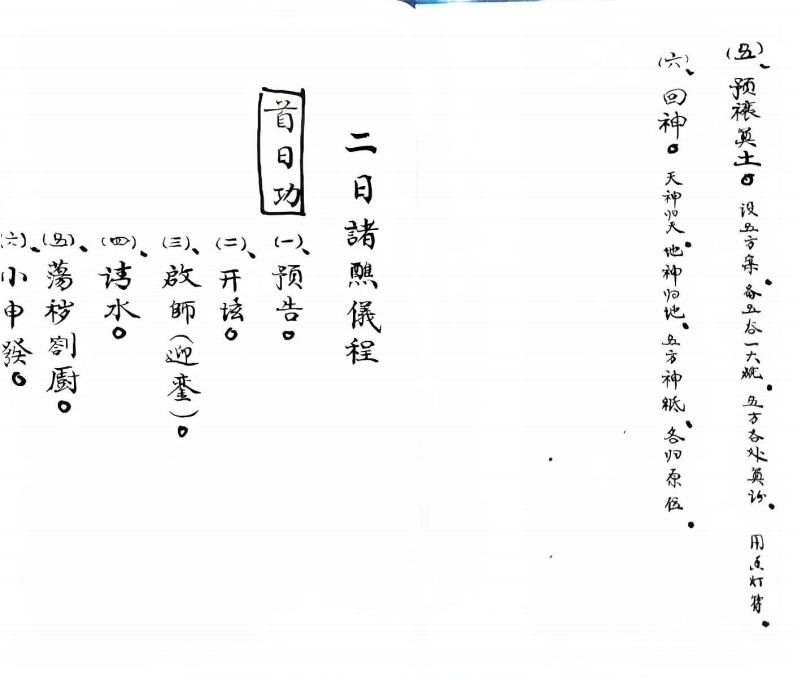 (五)、预禳奠土。设五方案、备五谷一大碗、五方各处奠谢、用点灯符、
(六)、回神。天神归天、地神归地、五方神祇、各归原位、
二日諸醮儀程
首日功
(一)、预告。
(二)、开坛。
(三)、啟師(迎銮)。
(四)、请水。
(五)、蕩秽劄廚。
(六)、小申發。